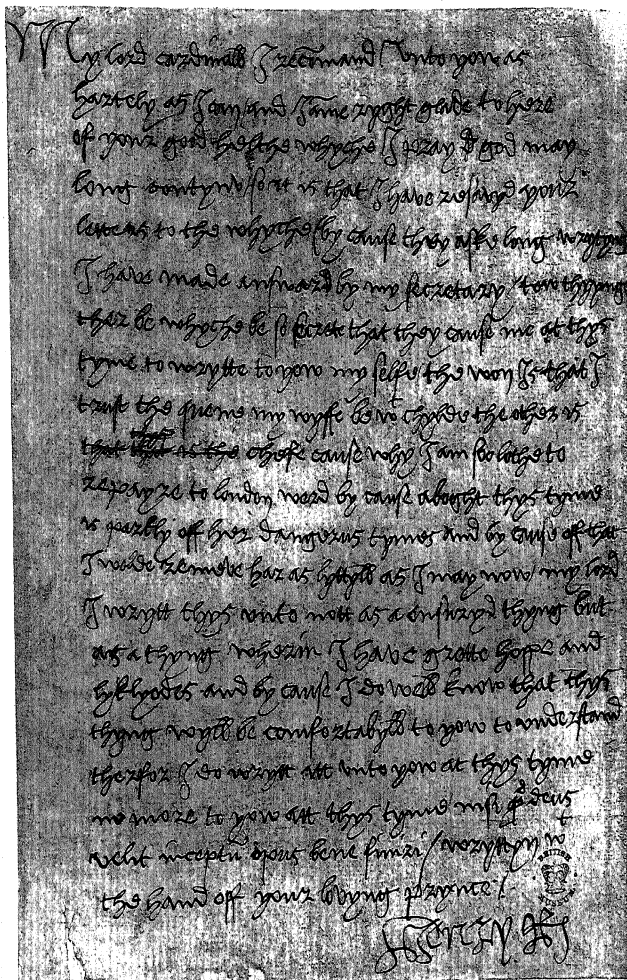 My lord cardinall I recommand unto yow as
hartely as I can and I ame ryght glade to here
of your good helthe whyche I pray god may
long contynu so it is that I have resavyd your
letters to the whyche by cause they aske long wrytyng
I have made answard by my secretary / tow thyngs
ther be whyche be so secrete that they cause me at thys
tyme to wrytte to yow my selfe the won Is that I
trust the quene my wyffe be wt chylde the other is
that is the chefe cause why I am soo lothe to
repayre to london ward by cause aboght thys tyme
is partly off her dangerus tymes and by cause off that
I wolde remeve har as lyttyll as I may now / my lord
I wrytt thys unto nott as a ensuryd thyng but
as a thyng wherin I have grette hoppe and
lyklyodes and by cause I do well know that thys
thyng wyll be comfortabyll to yow to understand
therfor I do wrytt itt unto yow at thys tyme
no more to yow att thys tyme nisi qd deus
velit inceptu opus bene finiri / wryttyn wt
the hand off your lovyng prynce /
Henry R